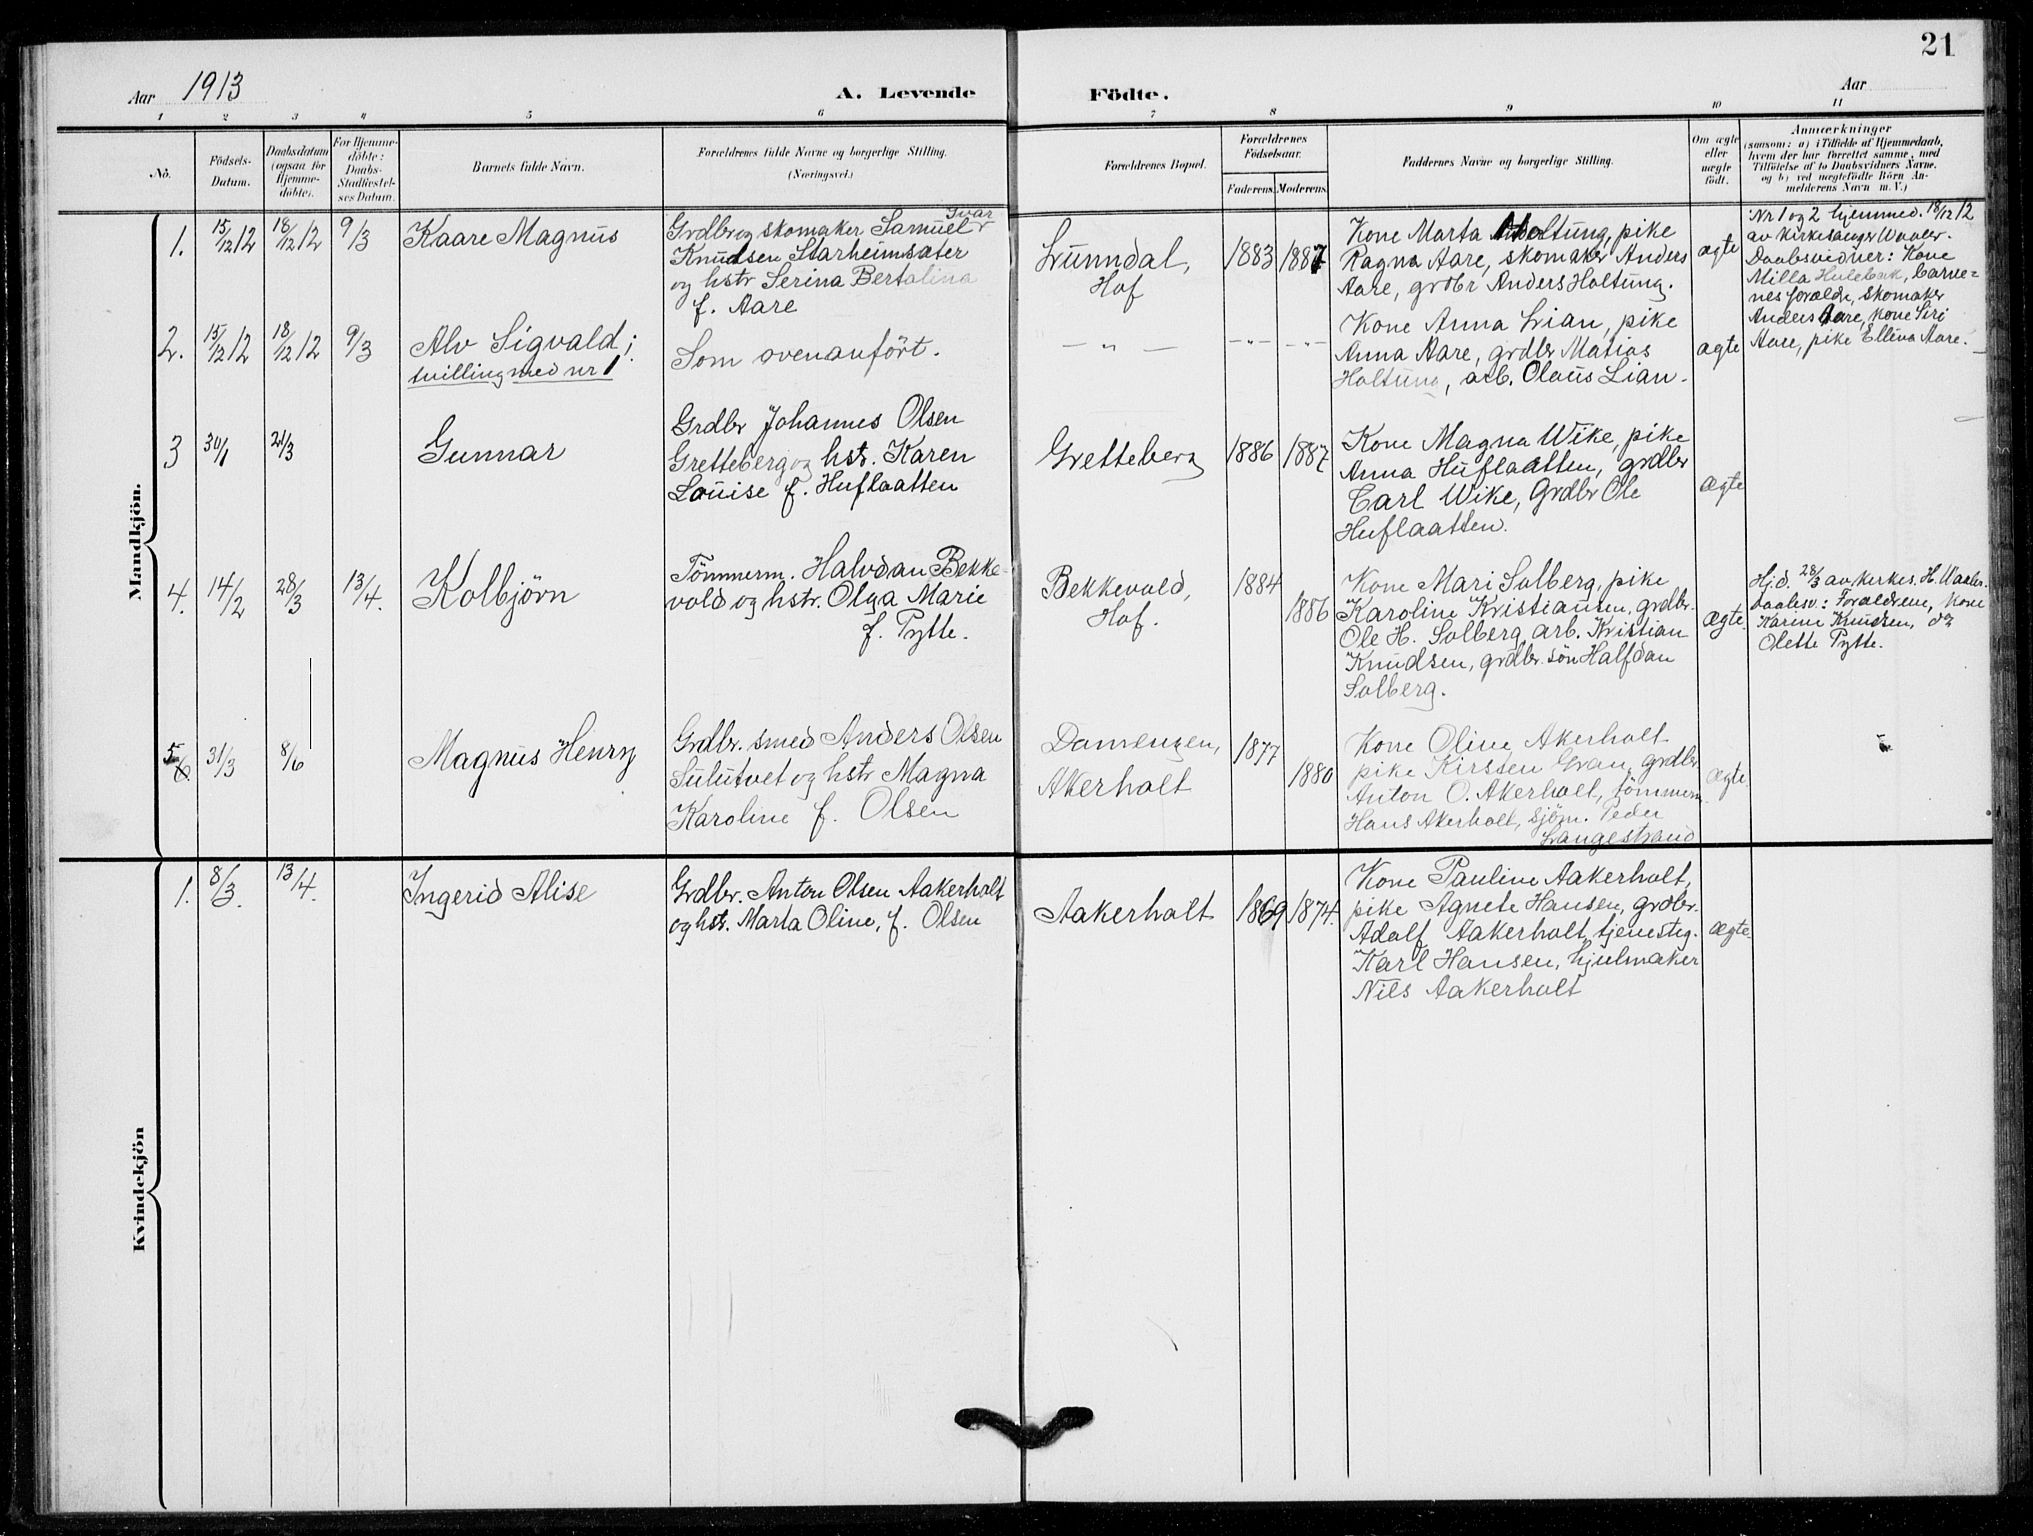 21
Aar 1913
A. Levende
Födte.
Aar
1 2 3 4 5 6 7 8 9 10 11
No.
Födsels-
Datum.
Daabsdatum
(ogsaa for
Hjemme-
döbte).
For Hjemme-
döbte:
Daabs-
Stadfæstel-
ses Datum.
Barnets fulde Navn.
Forældrenes fulde Navne og borgerlige Stilling.
(Næringsvei.)
Forældrenes Bopæl.
Forældrenes
Födselsaar.
Faderens. Moderens.
Faddernes Navne og borgerlige Stilling.
Om ægte
eller
uægte
födt.
Anmærkninger
(saasom: a) i Tilfælde af Hjemmedaab,
hvem der har forrettet samme, med
Tilföielse af to Daabsvidners Navne.
og b) ved uægtefödte Börn An-
melderens Navn m. V.)
Mandkjön.
1.
15/12 12
18/12 12
9/3
Kaare Magnus
Ivar
Grdbr og skomaker Samuel
Knudsen Starheimsæter
og hstr Serina Bertalina
f. Aare
Lunndal,
Hof
1883
1887
Kone Marta Holtung, pike
Ragna Aare, skomaker Anders
Aare, grdbr Anders Holtung.
ægte
Nr 1 og 2 hjemmed. 18/12 12
av kirkesanger Waaler.
Daabsvidner: Kone
Milla Hulebak, barne-
nes forældr, skomaker
Anders Aare, kone Siri
Aare, pike Ellena Aare.
2.
15/12 12
18/12 12
9/3
Alv Sigvald;
tvilling med nr 1
Som ovenanfört.
— „ —
— „ —
— „ —
Kone Anna Lian, pike
Anna Aare, grdbr Matias
Holtung, arb. Olaus Lian.
ægte
3
30/1
21/3
Gunnar
Grdbr Johannes Olsen
Gretteberg og hstr. Karen
Louise f. Huflaatten
Gretteberg
1886
1887
Kone Magna Wike, pike
Anna Huflaatten, grdbr
Carl Wike, Grdbr Ole
Huflaatten.
ægte
4.
14/2
28/3
13/4.
Kolbjörn
Tömmerm. Halvdan Bekke-
vold og hstr. Olga Marie
f. Pytte.
Bekkevold,
Hof.
1884
1886
Kone Mari Solberg, pike
Karoline Kristiansen, grdbr.
Ole H. Solberg, arb. Kristian
Knudsen, grdbr. sön Halfdan
Solberg.
ægte
Hjd. 28/3 av kirkes. H. Waaler.
Daabsv.: Forældrene, Kone
Karine Knudsen, og
Olette Pytte.
5
6
31/3
8/6
Magnus Henry
Grdbr. smed Anders Olsen
Sulutvet og hstr Magna
Karoline f. Olsen
Damengen,
Akerholt
1877
1880
Kone Oline Akerholt
pike Kirsten Gran, grdbr
Anton O. Akerholt, tömmerm.
Hans Akerholt, sjöm. Peder
Langestrand
ægte
Kvindekjön
1.
8/3.
13/4.
Ingerid Alise
Grdbr. Anton Olsen Aakerholt
og hst. Marta Oline, f. Olsen
Aakerholt
1869
1874.
Kone Pauline Aakerholt,
pike Agnete Hansen, grdbr.
Adolf Aakerholt, tjenesteg.
Karl Hansen, hjulmaker
Nils Aakerholt
ægte.